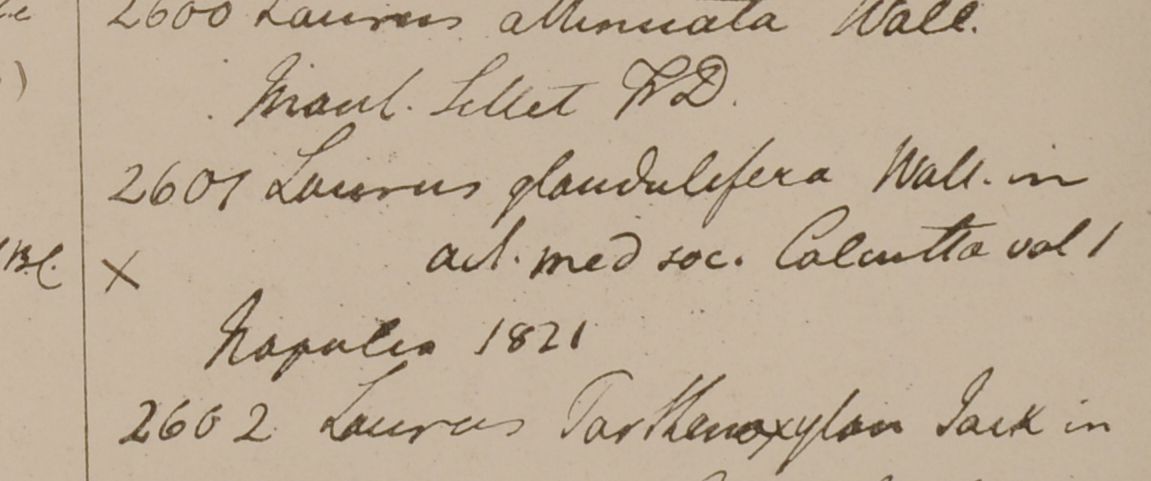 2600 Laurus attenuata Wall.
Mont. Sillet FD.
2601 Laurus glandulifera Wall. in
X act. med soc. Calcutta vol 1
Napalia 1821
2602 Laurus Parthenoxylon Jack in